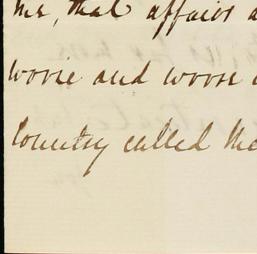 me, that affairs a
worse and worse
Country called the